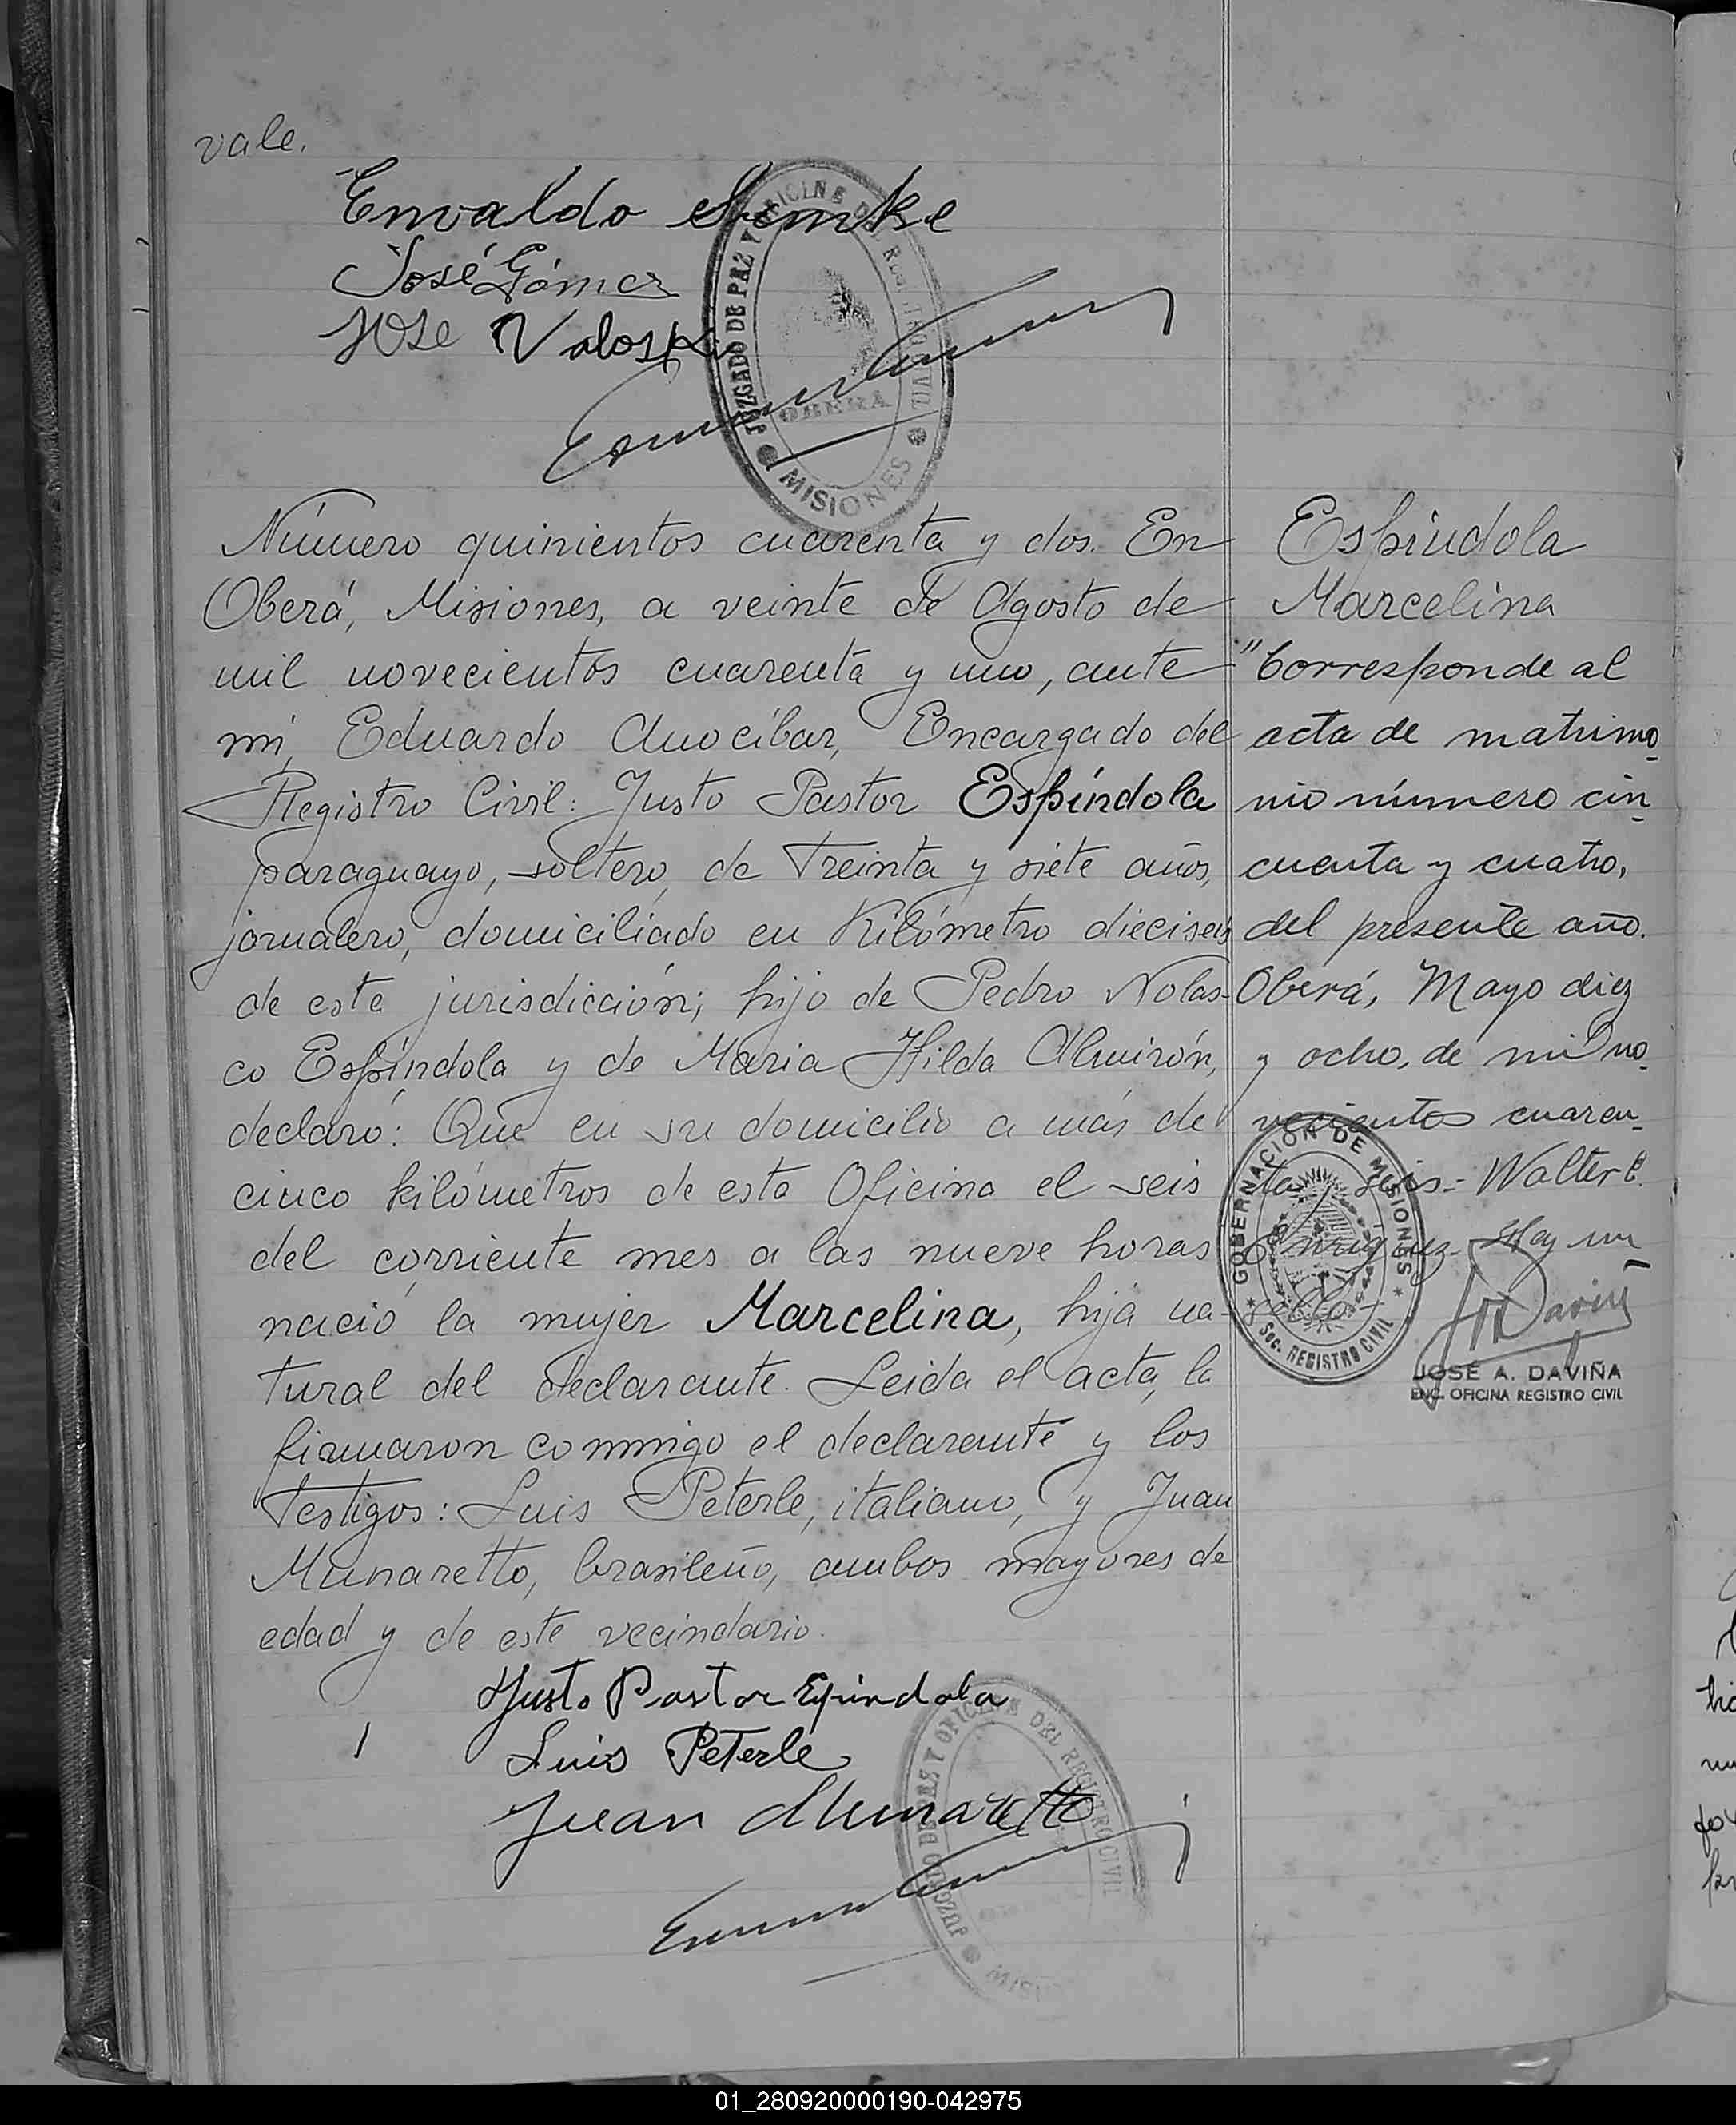 vale.
José Gómez
José Valoski
JUZGADO DE PAZ Y OFICINE DEL REGISTRO CIVIL
OBERA
MISIONES
Número quinientos cuarenta y dos. En
Oberá, Misiones, a veinte de Agosto de
mil novecientos cuarenta y uno, ante
mi, Eduardo Anocíbar, Encargado del
Registro Civil: Justo Pastor Espíndola
paraguayo, soltero, de treinta y siete años,
jornalero, domiciliado en Kilómetro dieciseis
de esta jurisdicción; hijo de Pedro Nolas-
co Espíndola y de Maria Hilda Almirón,
declaró: Que en su domicilio a más de
cinco kilómetros de esta Oficina el seis
del corriente mes a las nueve horas
nació la mujer Marcelina, hija na-
tural del declarante. Leida el acta, la
firmaron conmigo el declarante y los
testigos: Luis Peterle, italiano, y Juan
Munaretto, brasileño, ambos mayores de
edad y de este vecindario.
Justo Pastor Epindola
Luis Peterle
Juan Munaretto
JUZGADO DE PAZ Y OFICINE DEL REGISTRO CIVIL
Espíndola
Marcelina
"Corresponde al
acta de matrimo-
nio número cin-
cuenta y cuatro,
del presente año.
Oberá, Mayo diez
y ocho, de mil no-
vecientos cuaren-
ta y seis.- Walter E.
Enriquez. Hay un
sello.-
GOBERNACION DE MISIONES
Sec. REGISTRO CIVIL
JOSÉ A. DAVIÑA
ENC. OFICINA REGISTRO CIVIL
01_280920000190-042975